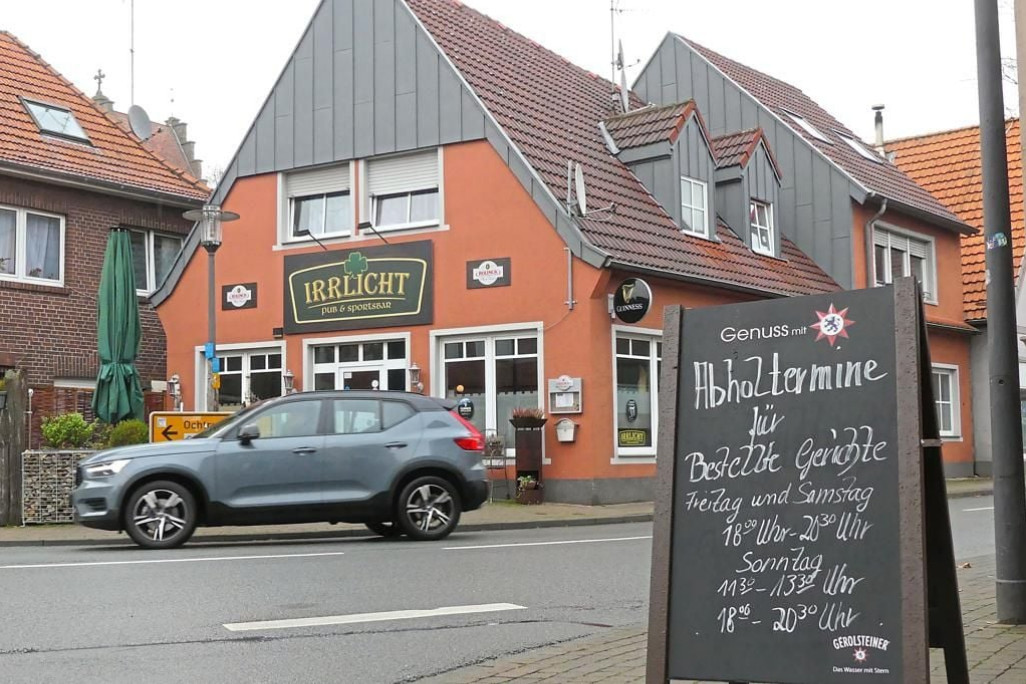 IRRLICHT
PUB & SPORTSBAR
GUINNESS
Ocht
IRRLICHT
Genuss mit
Abholtermine
für
Bestellte Gerichte
Freitag und Samstag
18⁰⁰ Uhr - 20³⁰ Uhr
Sonntag
11³⁰ - 13³⁰ Uhr
18⁰⁰ - 20³⁰ Uhr
GEROLSTEINER
Das Wasser mit Stern